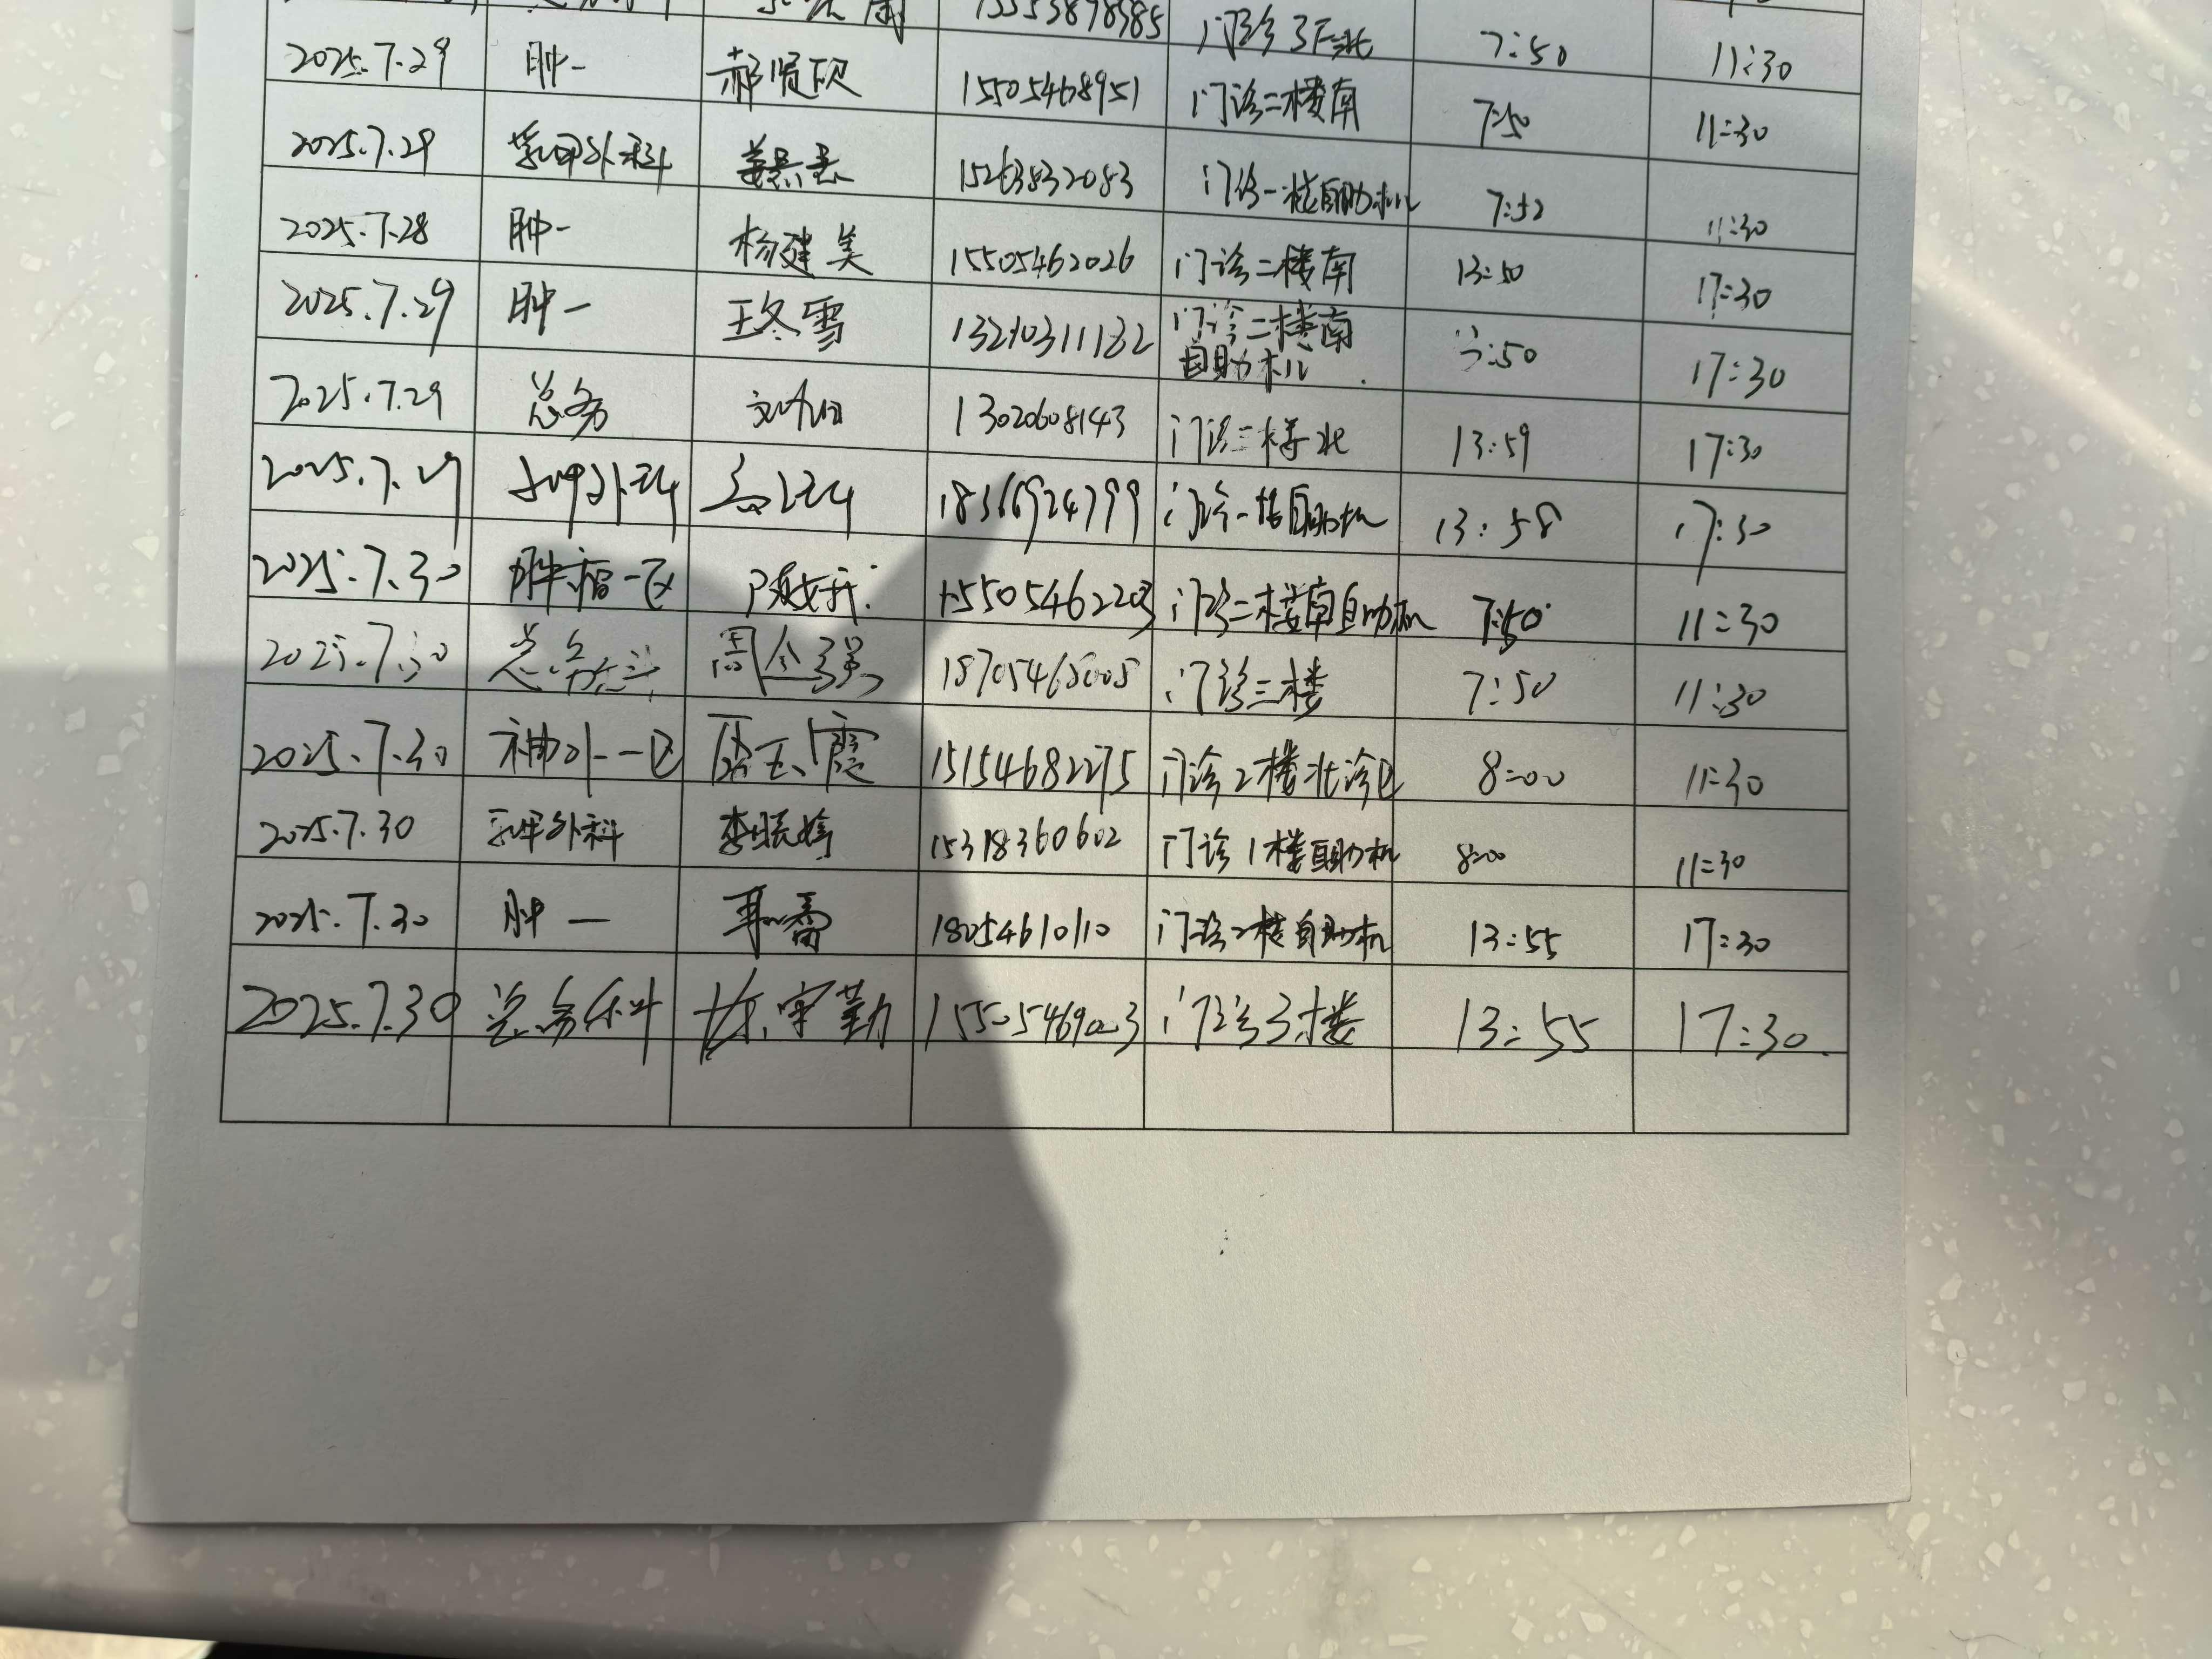 15553878585 门诊3F北 7:50 11:30
2025.7.29 肿一 郝贤欣 15505468951 门诊二楼南 7:50 11:30
2025.7.29 乳甲外科 15263832083 门诊一楼自助机 7:52 11:30
2025.7.28 肿一 杨建美 15505462026 门诊二楼南 13:50 17:30
2025.7.29 肿一 王冬雪 门诊二楼南
自助机 :50 17:30
2025.7.29 总务 13020608143 门诊三楼北 13:59 17:30
2025.7.29 乳甲外科 18366924799 门诊一楼自助机 13:58 17:30
2025.7.30 肿瘤一区 15505462203 门诊二楼南自助机 7:50 11:30
2025.7.30 总务 周金强 18705468008 门诊三楼 7:50 11:30
2025.7.30 神外一区 15154682275 门诊2楼北诊区 8:00 11:30
2025.7.30 乳甲外科 李晓婷 15318360602 门诊1楼自助机 8:00 11:30
2025.7.30 肿一 18054610110 门诊2楼自助机 13:55 17:30
2025.7.30 总务科 15505469003 门诊3楼 13:55 17:30.